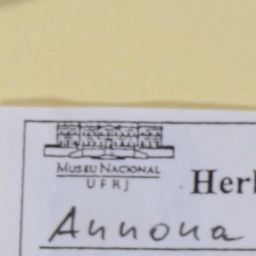 MUSEU NACIONAL
UFRJ
Annona